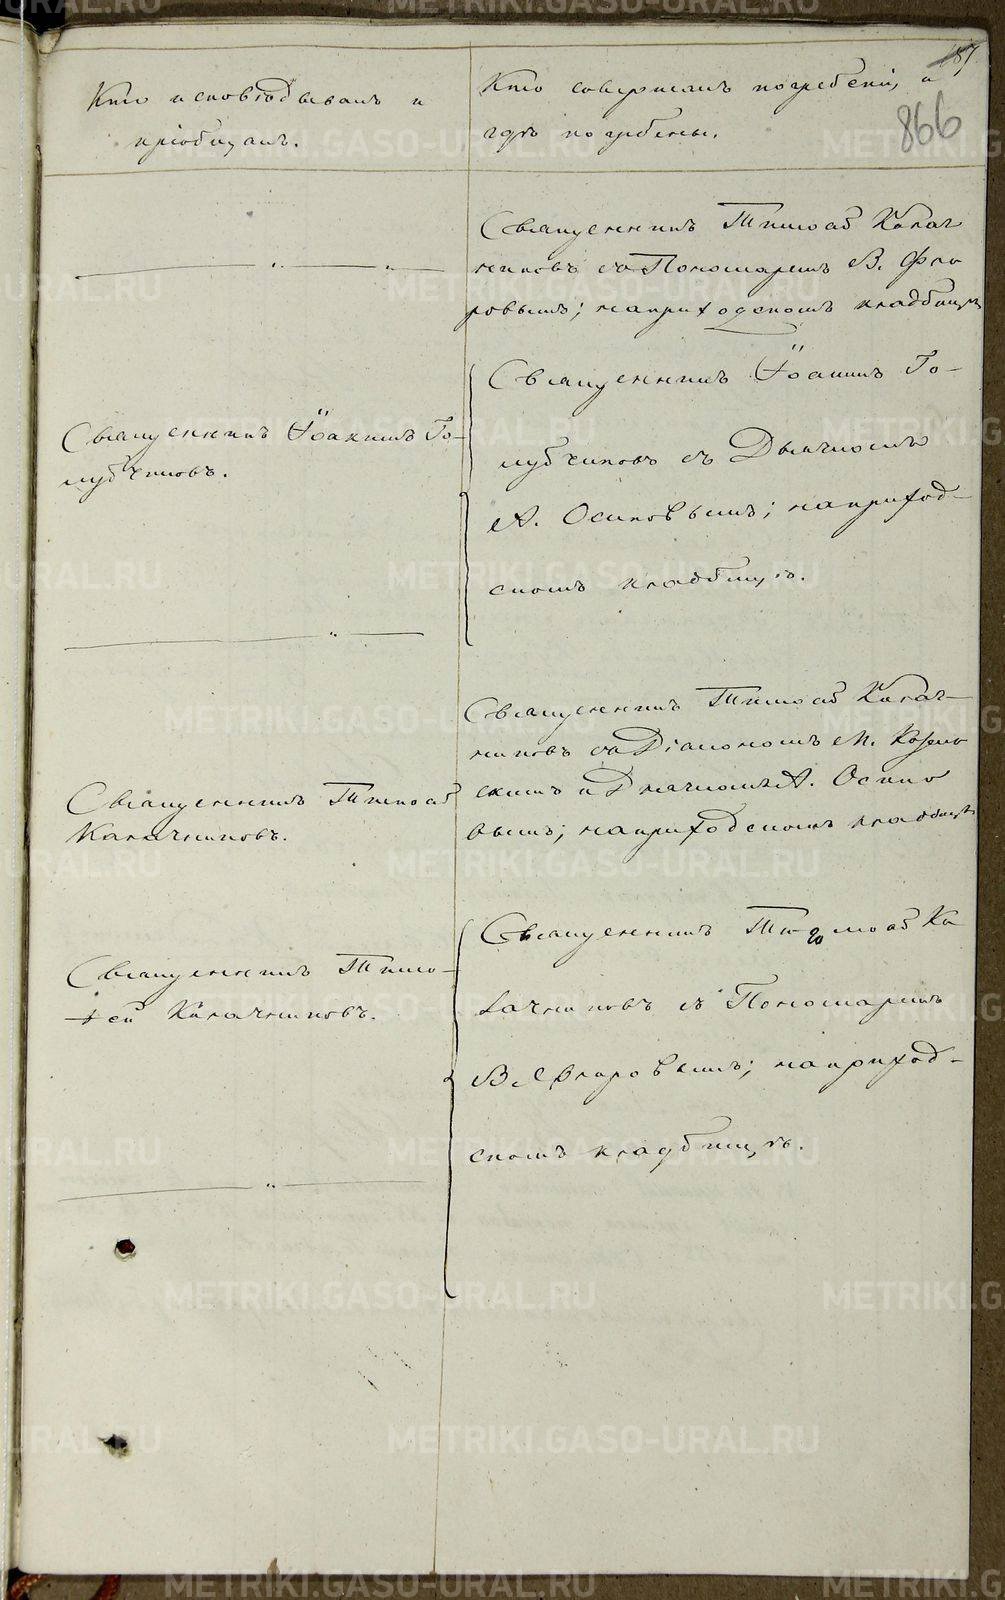 187
866
Кто исповѣдывалъ и
пріобщалъ.
Кто совершалъ погребеніе, и
гдѣ погребены.
Священникъ Тимоѳей Калач
никовъ съ Пономаремъ В. Фло
ровымъ; на приходскомъ кладбищѣ
Священникъ Іоаннъ Го-
лубчиковъ.
Священникъ Іоаннъ Го-
лубчиковъ съ Дьячкомъ
А. Осиповымъ; на приход-
скомъ кладбищѣ.
Священникъ Тимоѳей
Калачниковъ.
Священникъ Тимоѳей Калач-
никовъ съ Діакономъ М.
скимъ и Дьячкомъ А. Осипо
вымъ; на приходскомъ кладбищѣ
Священникъ Тимо-
ѳей Калачниковъ.
Священникъ Тимоѳей Ка
лачниковъ съ Пономаремъ
В. Флоровымъ; на приход-
скомъ кладбищѣ.
METRIKI.GASO-URAL.RU